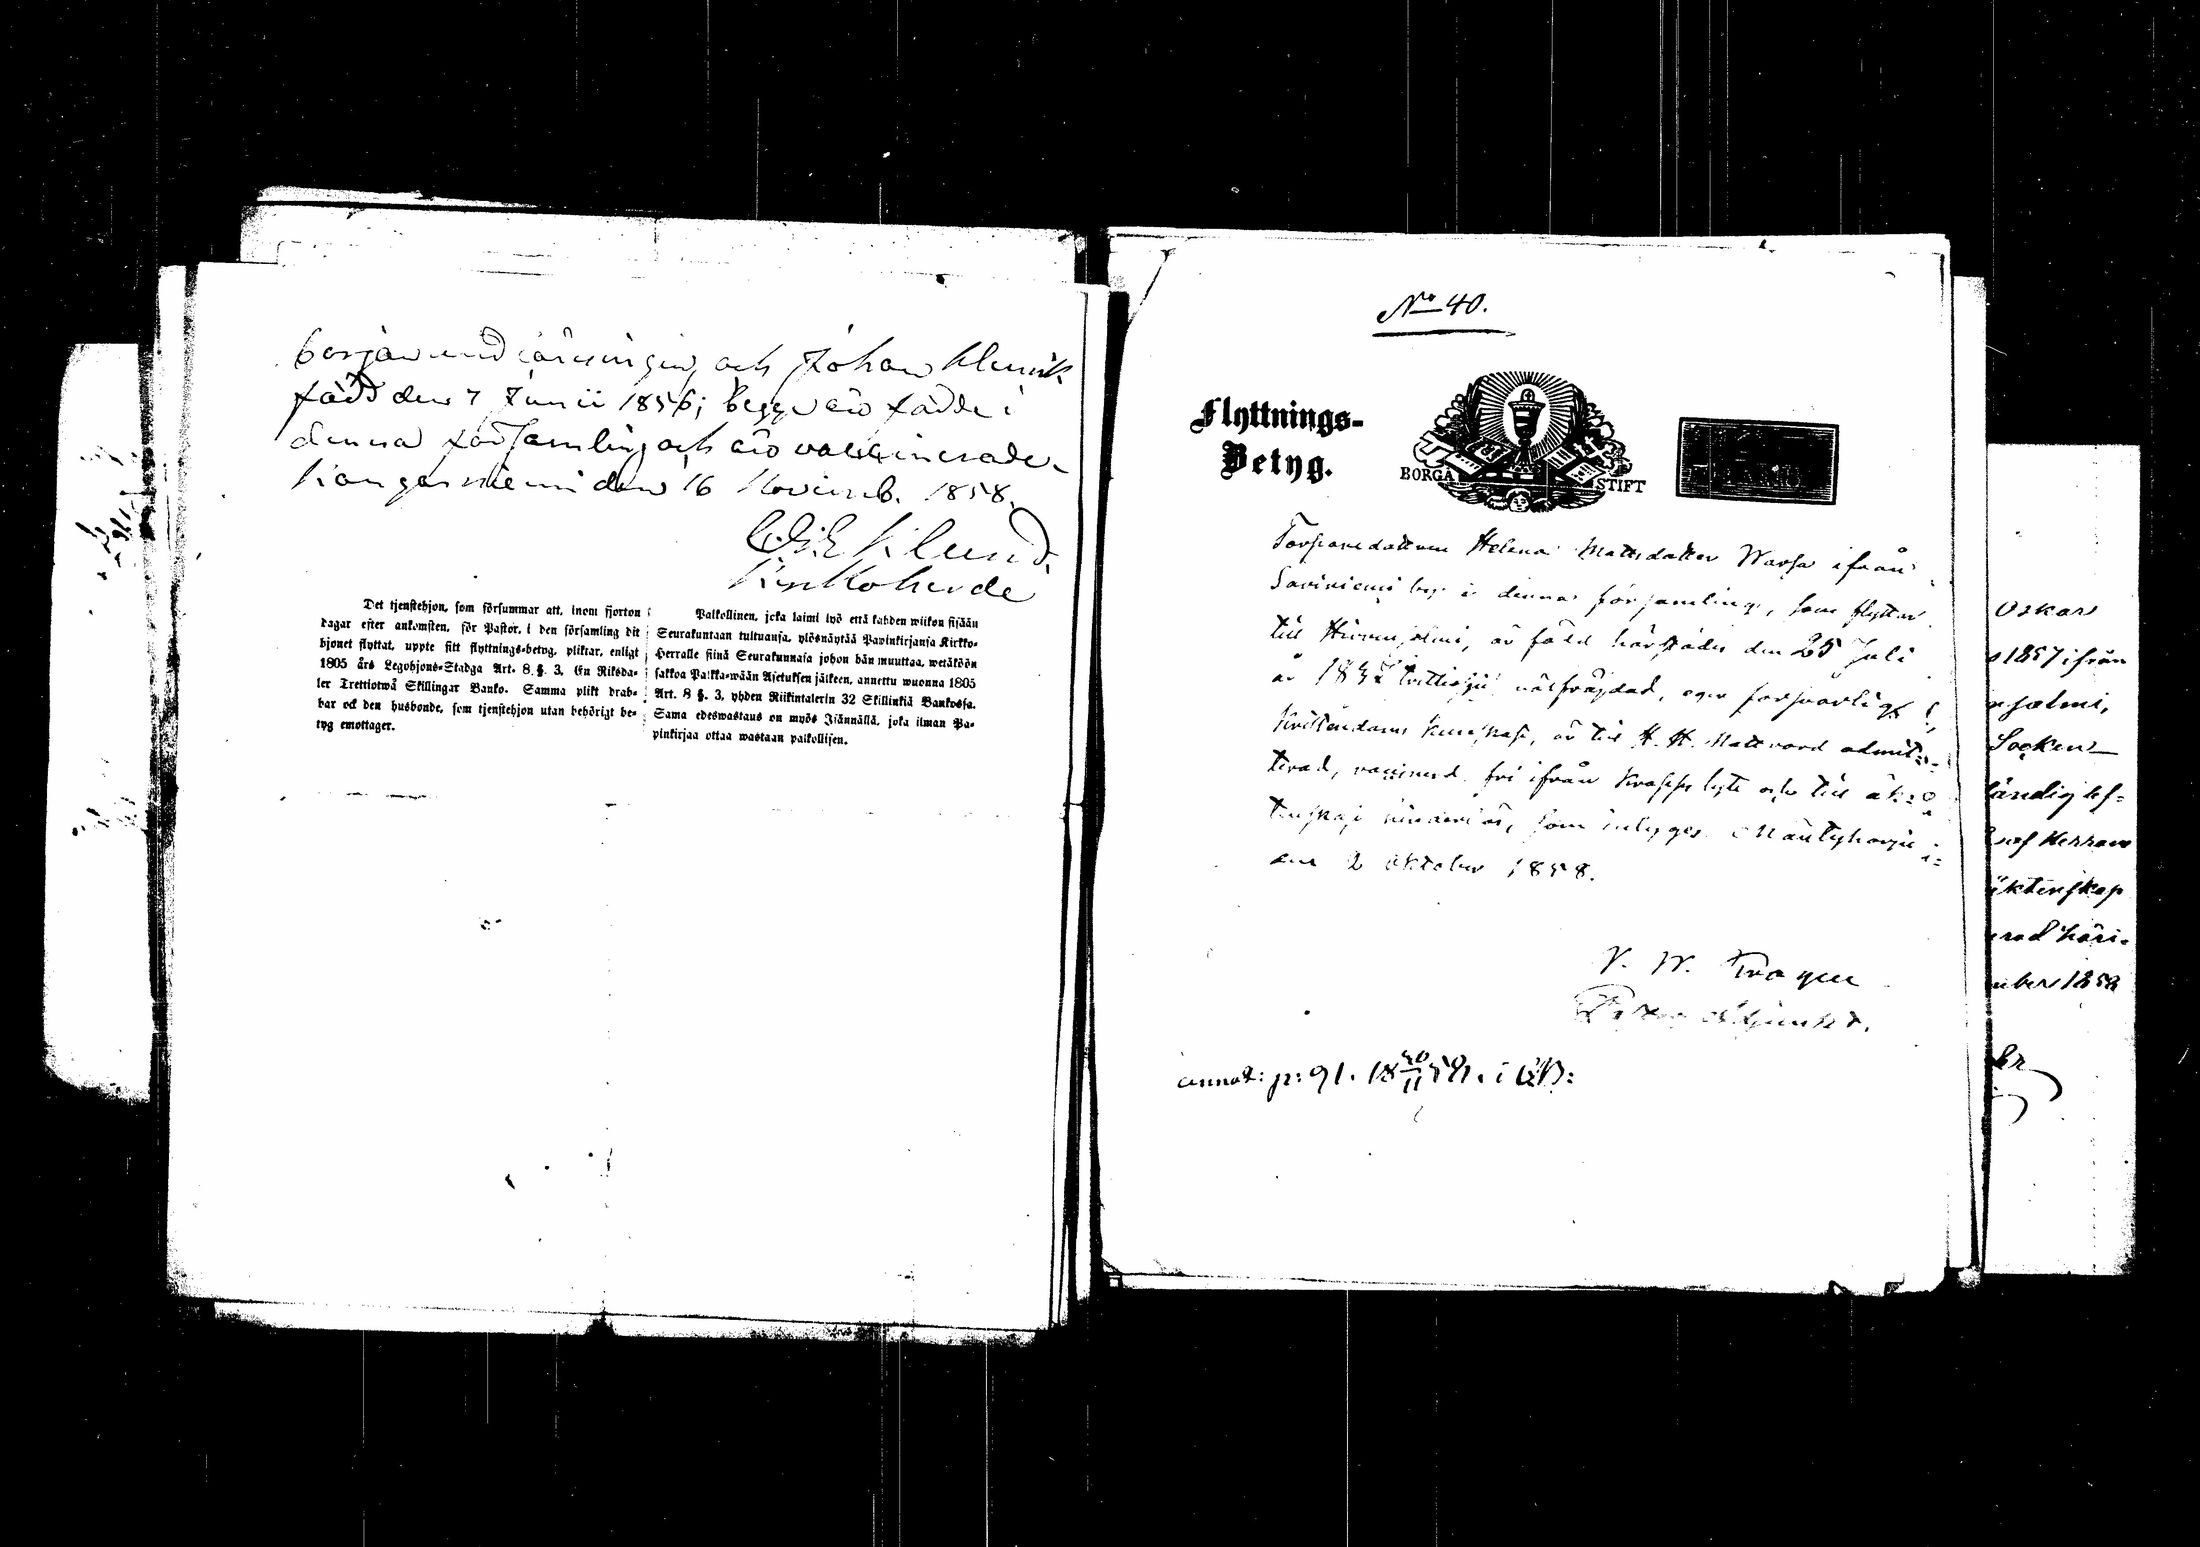 och Johan Henrik
född den 7 Junii 1856; begge äro födde i
denna församling och äro vaccinerade.
Kangasniemi den 16 Novemb. 1858.
Kyrkoherde
Det tjenstehjon, som försummar att, inom fjorton
dagar efter ankomsten, för Pastor, i den församling dit
hjonet flyttat, uppte sitt flyttnings-betyg, pliktar, enligt
1805 års Legohjons-Stadga Art. 8 §. 3, En Riksda-
ler Trettiotwå Skillingar Banko. Samma plikt drab-
bar ock den husbonde, som tjenstehjon utan behörigt be-
tyg emottager.
Palkollinen, joka laimi lyö että kahden wiikon sisään
Seurakuntaan tultuansa, ylösnäytää Papinkirjansa Kirkko-
Herralle siinä Seurakunnasa johon hän muuttaa, wetäköön
sakkoa Palkka-wään Asetuksen jälkeen, annettu wuonna 1805
Art. 8 §. 3, yhden Riikintalerin 32 Skillinkiä Bankossa.
Sama edeswastaus on myös Isännällä, joka ilman Pa-
pinkirjaa ottaa wastaan palkollisen.
No 40.
Flyttnings-
Betyg.
BORGÅ STIFT
Torparedottren Helena Mattsdotter Warsa ifrån
Saviniemi by i denna församling, som flyttar
till Hirvensalmi, är född härstädes den 25 Juli
år 1832 trettiotvå, välfrägdad, eger försvarlig
Kristendoms kunskap, är till H. H. Nattvard admit-
terad, vaccinerad, fri ifrån kroppslyte och till äk-
tenskap hinderlös, som intygges. Mäntyharju
den 2 Oktober 1858.
V. W.
annot: p: 91. i
Oskar
1857 ifrån
salmi,
Socken
ständig ef=
af Herrans
äktenskap
rad häri-
mber 1858